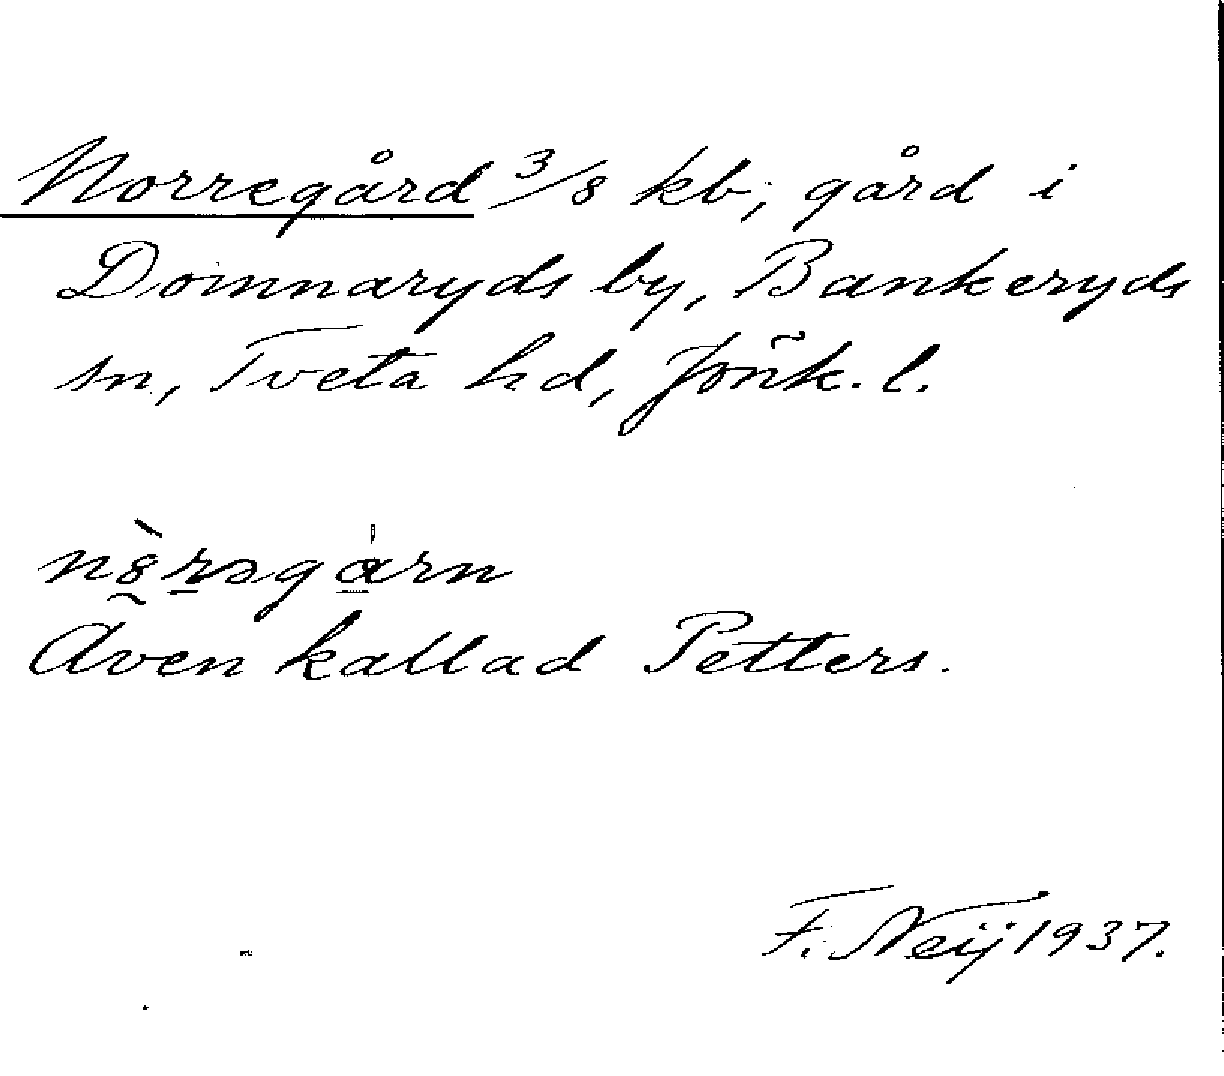 Norregård 3/8 kb; gård i
Domnaryds by, Bankeryds
sn, Tveta hd, Jönk. l.
Även kallad Petters.
F. Neij 1937.